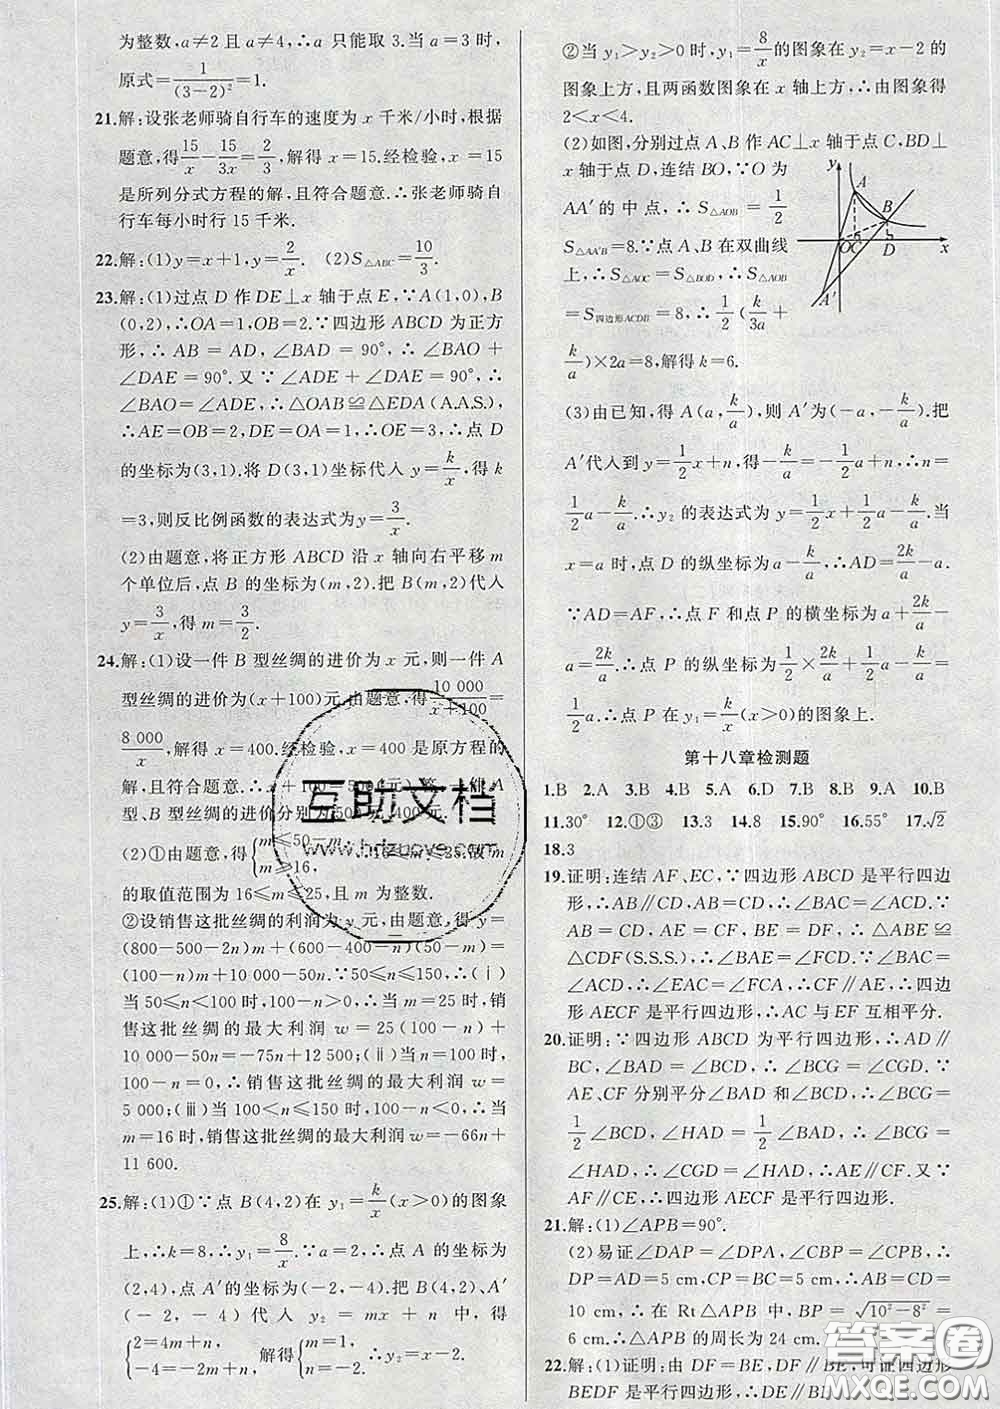 为整数,a≠2 且 a≠4,∴a 只能取 3.当 a=3 时,
原式=1/(3-2)²=1.
21.解:设张老师骑自行车的速度为 x 千米/小时,根据
题意,得15/x-15/3x=2/3,解得 x=15.经检验,x=15
是所列分式方程的解,且符合题意.∴张老师骑自
行车每小时行 15 千米.
22.解:(1)y=x+1,y=2/x. (2)S△ABC=10/3.
23.解:(1)过点 D 作 DE⊥x 轴于点 E,∵A(1,0),B
(0,2),∴OA=1,OB=2.∵四边形 ABCD 为正方
形,∴AB=AD,∠BAD=90°.∴∠BAO+
∠DAE=90°.又∵∠ADE+∠DAE=90°,∴
∠BAO=∠ADE,∴△OAB≌△EDA(A.A.S.),
∴AE=OB=2,DE=OA=1,∴OE=3,∴点 D
的坐标为(3,1).将 D(3,1)坐标代入 y=k/x,得 k
=3,则反比例函数的表达式为 y=3/x.
(2)由题意,将正方形 ABCD 沿 x 轴向右平移 m
个单位后,点 B 的坐标为(m,2).把 B(m,2)代入
y=3/x,得 m=3/2.
24.解:(1)设一件 B 型丝绸的进价为 x 元,则一件 A
型丝绸的进价为(x+100)元.由题意,得10 000/(x+100)=
8 000/x,解得 x=400.经检验,x=400 是原方程的
解,且符合题意.∴x+100=500(元).答:一件 A
型、B 型丝绸的进价分别为 500 元,400 元.
(2)①由题意,得{m≤50-m, m≥16, ∴16≤m≤25,故 m
的取值范围为 16≤m≤25,且 m 为整数.
②设销售这批丝绸的利润为 y 元,由题意,得 y=
(800-500-2n)m+(600-400-n)(50-m)=
(100-n)m+10 000-50n.∵50≤n≤150,∴(ⅰ)
当 50≤n<100 时,100-n>0,∴m=25 时,销
售这批丝绸的最大利润 w=25(100-n)+
10 000-50n=-75n+12500;(ⅱ)当 n=100 时,
100-n=0,∴销售这批丝绸的最大利润 w=
5 000;(ⅲ)当 100<n≤150 时,100-n<0,∴当
m=16 时,销售这批丝绸的最大利润 w=-66n+
11 600.
25.解:(1)①∵点 B(4,2)在 y₁=k/x(x>0)的图象
上,∴k=8,∴y₁=8/x.∵a=2,∴点 A 的坐标为
(2,4),点 A′的坐标为(-2,-4).把 B(4,2)、A′
(-2,-4)代入 y₂=mx+n 中,得
{2=4m+n, -4=-2m+n, 解得{m=1, n=-2. ∴y₂=x-2.
②当 y₁>y₂>0 时,y₁=8/x的图象在 y₂=x-2 的
图象上方,且两函数图象在 x 轴上方,∴由图象得
2<x<4.
(2)如图,分别过点 A、B 作 AC⊥x 轴于点 C,BD⊥
x 轴于点 D,连结 BO,∵O 为
AA′的中点,∴S△AOB=1/2
S△AA′B=8.∵点 A、B 在双曲线
上,∴S△AOC=S△BOD,∴S△AOB
=S四边形ACDB=8,∴1/2(k/3a+
k/a)×2a=8,解得 k=6.
y
A
B
O
C
D
x
A′
(3)由已知,得 A(a,k/a),则 A′为(-a,-k/a).把
A′代入到 y=1/2x+n,得-k/a=-1/2a+n,∴n=
1/2a-k/a.∴y₂ 的表达式为 y=1/2x+1/2a-k/a.当
x=a 时,点 D 的纵坐标为 a-k/a,∴AD=2k/a-a.
∵AD=AF,∴点 F 和点 P 的横坐标为 a+2k/a-
a=2k/a.∴点 P 的纵坐标为1/2×2k/a+1/2a-k/a=
1/2a.∴点 P 在 y₁=k/x(x>0)的图象上.
第十八章检测题
1.B 2.A 3.B 4.B 5.A 6.D 7.B 8.B 9.A 10.B
11.30° 12.①③ 13.3 14.8 15.90° 16.55° 17.√2
18.3
19.证明:连结 AF、EC,∵四边形 ABCD 是平行四边
形,∴AB∥CD,AB=CD,∵AE=CF,BE=DF,∴△ABE≌
△CDF(S.S.S.),∴∠BAE=∠FCD.∵∠BAC=
∠ACD,∴∠EAC=∠FCA,∴CF∥AE,∴四边
形 AECF 是平行四边形,∴AC 与 EF 互相平分.
20.证明:∵四边形 ABCD 为平行四边形,∴AD∥
BC,∠BAD=∠BCD,∴∠BCG=∠CGD.∵
AE、CF 分别平分∠BAD 和∠BCD,∴∠BCG=
1/2∠BCD,∠HAD=1/2∠BAD,∴∠BCG=
∠HAD,∴∠HAD=∠CGD,∴AE∥CF.又∵
AF∥CE,∴四边形 AECF 是平行四边形.
21.解:(1)∠APB=90°.
(2)易证∠DAP=∠DPA,∠CBP=∠CPB,∴
DP=AD=5 cm,CP=BC=5 cm,∴AB=CD=
10 cm,∴在 Rt△APB 中,BP=√(10²-8²)=
6 cm,∴△APB 的周长为 24 cm.
22.解:(1)证明:由 DF=BE,DF∥BE,可证四边形
BEDF 是平行四边形,∴DE∥BF
互助文档
www.hdzuoye.com
答案圈
MXQE.COM